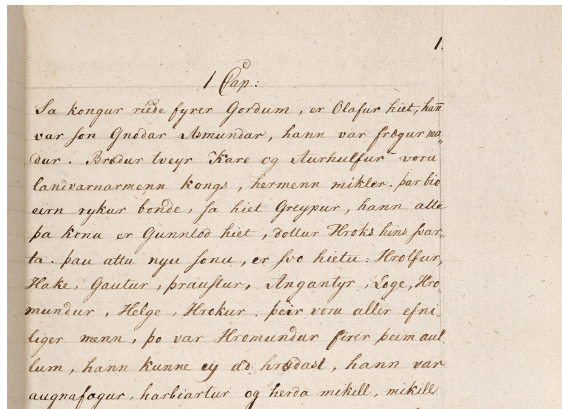 1.
1 Cap:
Sa kongur riede fyrer Gordum, er Olafur hiet, han̄
var son Gnodar Asmundar, hann var frægur ma„
dur. Brædur tveyr Kare og Aurhulfur voru
landvarnarmenn kongs, hermenn mikler. þar bio
eirn rykur bonde, sa hiet Greypur, hann atte
þa konu er Gunnlod hiet, dottur Hroks hins svar„
ta. þau attu nyu sonu, er svo hietu: Hrolfur,
Hake, Gautur, þraustur, Angantyr, Loge, Hro
mundur, Helge, Hrokur. þeir voru aller efni„
liger menn, þo var Hromundur firer þeim aul
lum, hann kunne ey ad hrædast, hann var
augnafagur, harbiartur og herda mikill, mikill